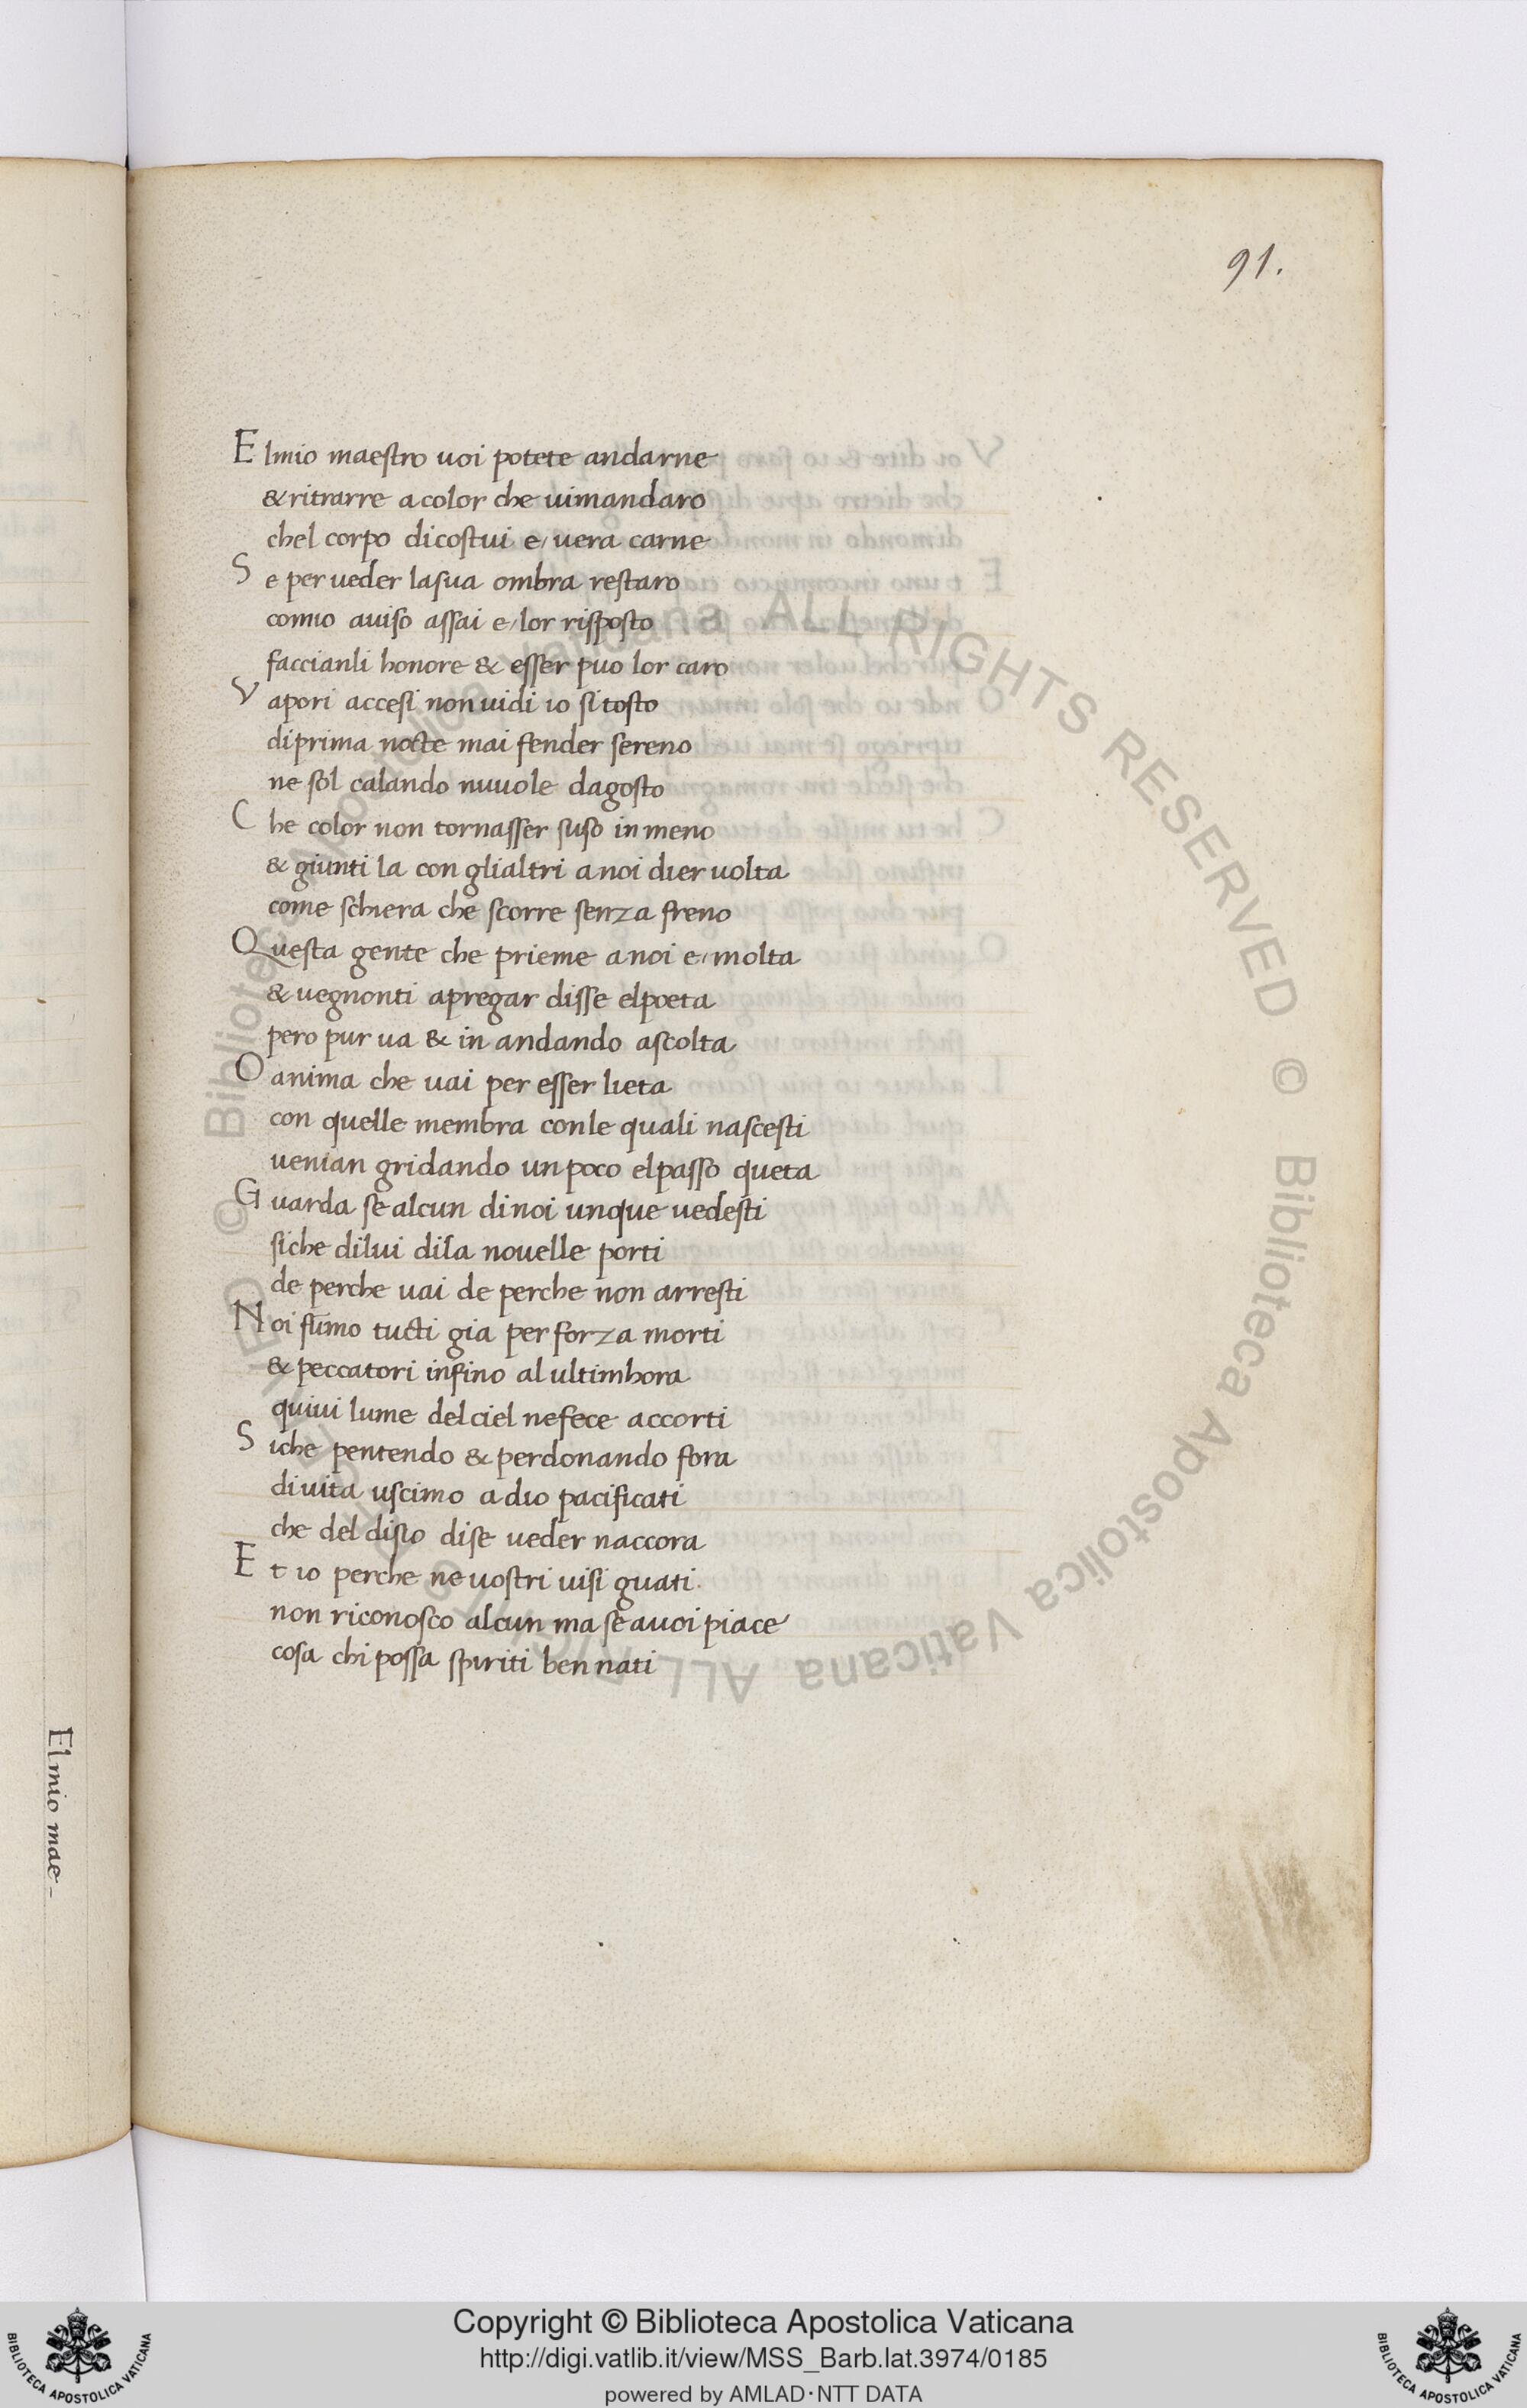 91.
E lmio maestro uoi potete andarne
& ritrarre acolor che uimandaro
chel corpo dicostui e/ uera carne
S e per ueder lasua ombra restaro
comio auiso assai e/ lor risposto
faccianli honore & esser puo lor caro
V apori accesi non uidi io si tosto
diprima nocte mai fender sereno
ne sol calando nuuole dagosto
C he color non tornasser suso in meno
& giunti la con glialtri anoi dier uolta
come schiera che scorre senza freno
Q uesta gente che prieme anoi e/ molta
& uegnonti apregar disse elpoeta
pero pur ua & in andando ascolta
O anima che uai per esser lieta
con quelle membra conle quali nascesti
uenian gridando unpoco elpasso queta
G uarda se alcun dinoi unque uedesti
siche dilui dila nouelle porti
de perche uai de perche non arresti
N oi fūmo tucti gia per forza morti
& peccatori infino al ultimhora
quiui lume del ciel nefece accorti
S iche pentendo & perdonando fora
di uita uscimo adio pacificati
che del disio dise ueder naccora
E t io perche ne uostri uisi guati.
non riconosco alcun ma se auoi piace
cosa chi possa spiriti ben nati
El mio mae-
© Biblioteca Apostolica Vaticana ALL RIGHTS RESERVED © Biblioteca Apostolica Vaticana ALL RIGHTS RESERVED
Copyright © Biblioteca Apostolica Vaticana
http://digi.vatlib.it/view/MSS_Barb.lat.3974/0185
powered by AMLAD·NTT DATA
BIBLIOTECA APOSTOLICA VATICANA
BIBLIOTECA APOSTOLICA VATICANA